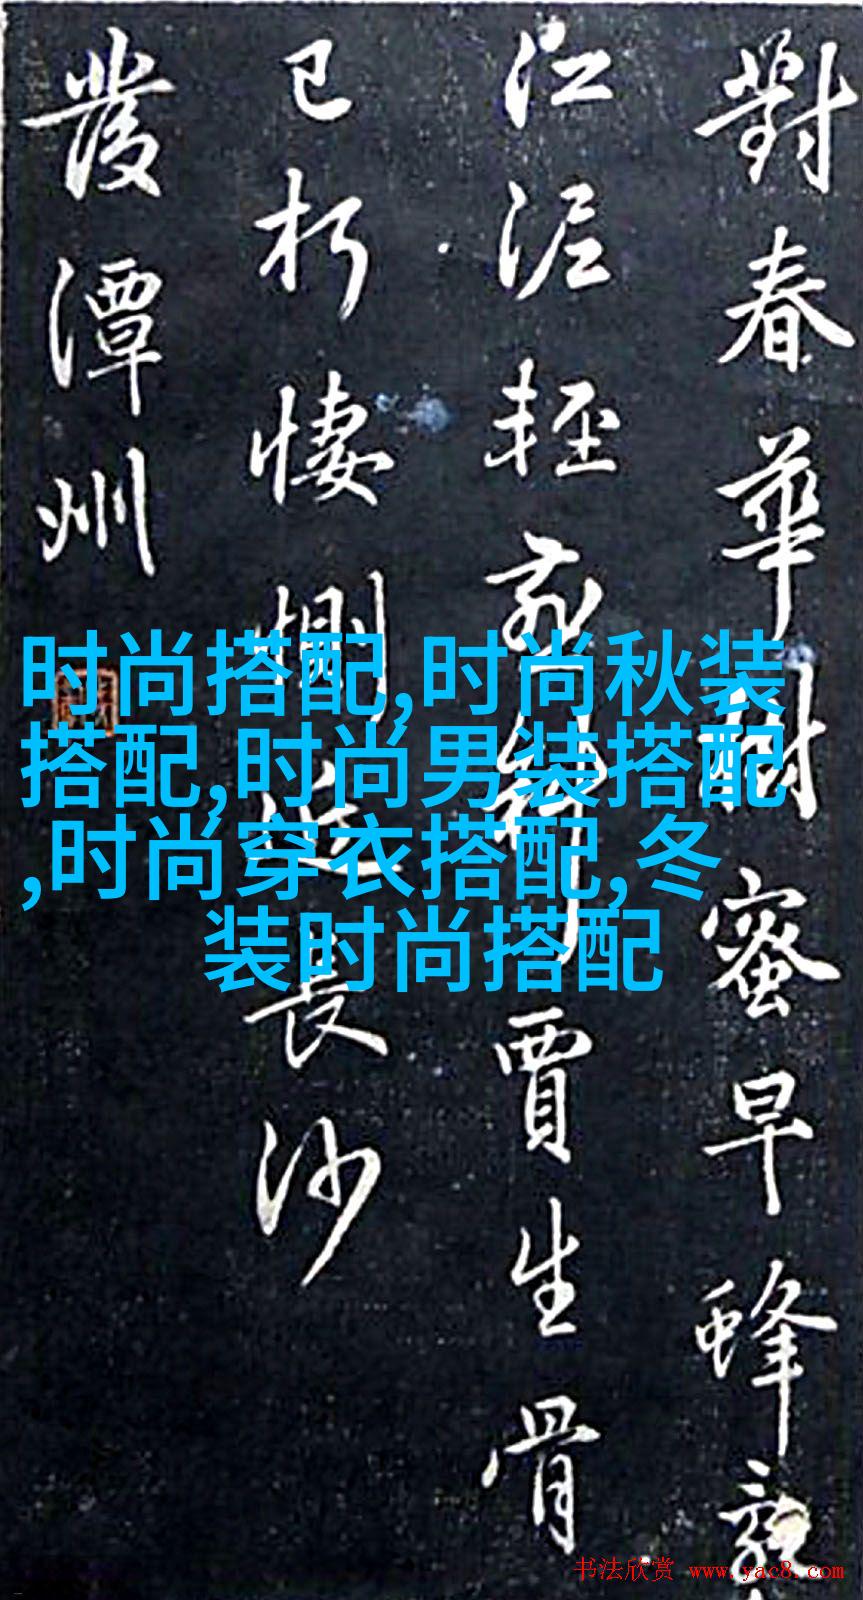 對春華樹蜜早蜂
江泥輕燕斜賈生骨
已朽悽惻近長沙
發潭州
时尚搭配,时尚秋装
搭配,时尚男装搭配
,时尚穿衣搭配,冬
装时尚搭配
书法欣赏 www.yac8.com